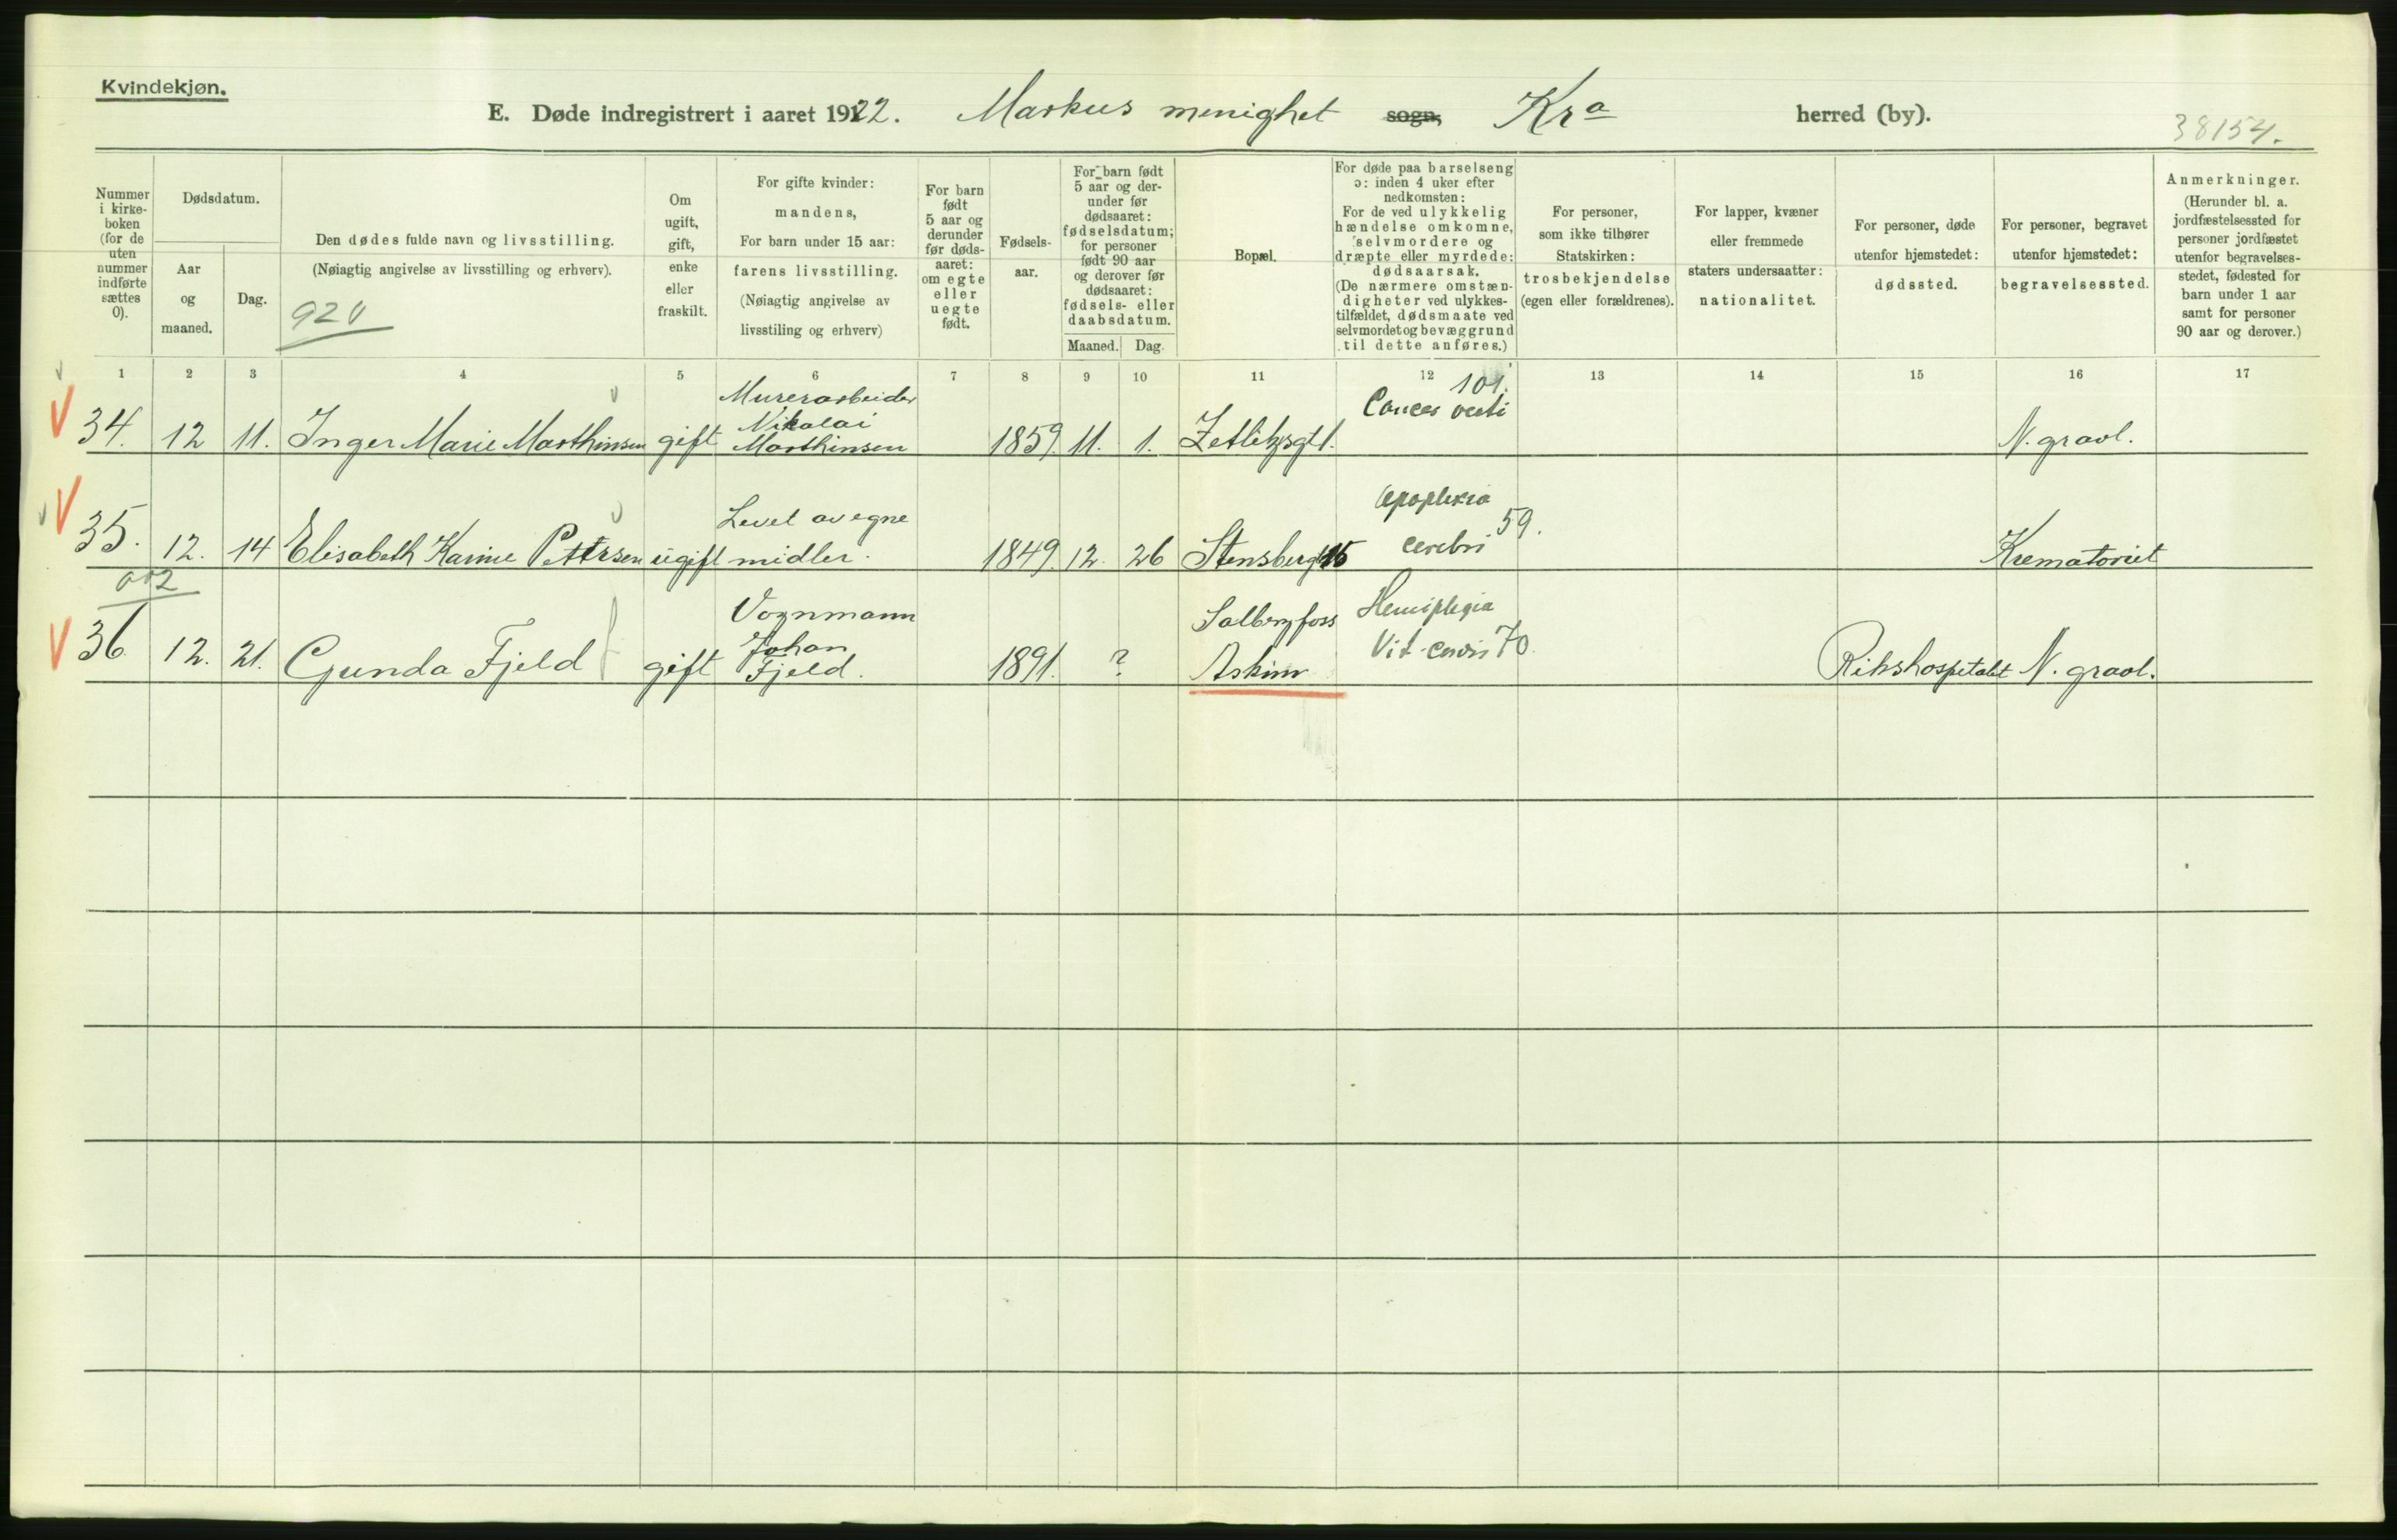 Kvindekjøn.
E. Døde indregistrert i aaret 1922. Markus menighet sogn, Kra herred (by).
38154.
Nummer i kirke-boken (for de uten nummer indførte sættes 0).
Dødsdatum.
Aar og maaned.
Dag.
Den dødes fulde navn og livsstilling.
(Nøiagtig angivelse av livsstilling og erhverv).
92
Om ugift, gift, enke eller fraskilt.
For gifte kvinder:
mandens,
For barn under 15 aar:
farens livsstilling.
(Nøiagtig angivelse av
livsstiling og erhverv)
For barn født 5 aar og derunder før døds-aaret: om egte eller uegte født.
Fødsels-aar.
For barn født 5 aar og der-under før dødsaaret: fødselsdatum; for personer født 90 aar og derover før dødsaaret: fødsels- eller daabsdatum.
Maaned. Dag.
Bopæl.
For døde paa barselseng ɔ: inden 4 uker efter nedkomsten:
For de ved ulykkelig hændelse omkomne, selvmordere og dræpte eller myrdede: dødsaarsak.
(De nærmere omstæn-digheter ved ulykkes-tilfældet, dødsmaate ved selvmordet og bevæggrund til dette anføres.)
For personer, som ikke tilhører Statskirken: trosbekjendelse (egen eller forældrenes).
For lapper, kvæner eller fremmede staters undersaatter: nationalitet.
For personer, døde utenfor hjemstedet: dødssted.
For personer, begravet utenfor hjemstedet: begravelsessted.
Anmerkninger.
(Herunder bl. a. jordfæstelsessted for personer jordfæstet utenfor begravelses-stedet, fødested for barn under 1 aar samt for personer 90 aar og derover.)
1 2 3 4 5 6 7 8 9 10 11 12 13 14 15 16 17
34. 12 11. Inger Marie Marthinsen gift Murerarbeider Nikolai Marthinsen 1859. 11. 1. Zetlitzgt 1. Cancer 101. N. gravl.
35. 12. 14 Elisabeth Karine Pettersen ugift Levet av egne midler. 1849. 12. 26 Stensberggt 15 Apoplexia cerebri 59. Krematoriet
36 12. 21. Gunda Fjeld gift Vognmann Johan Fjeld. 1891. ? Solbergfoss Askim Hemiplegia Vit. cordis 70. Rikshospitalet N. gravl.